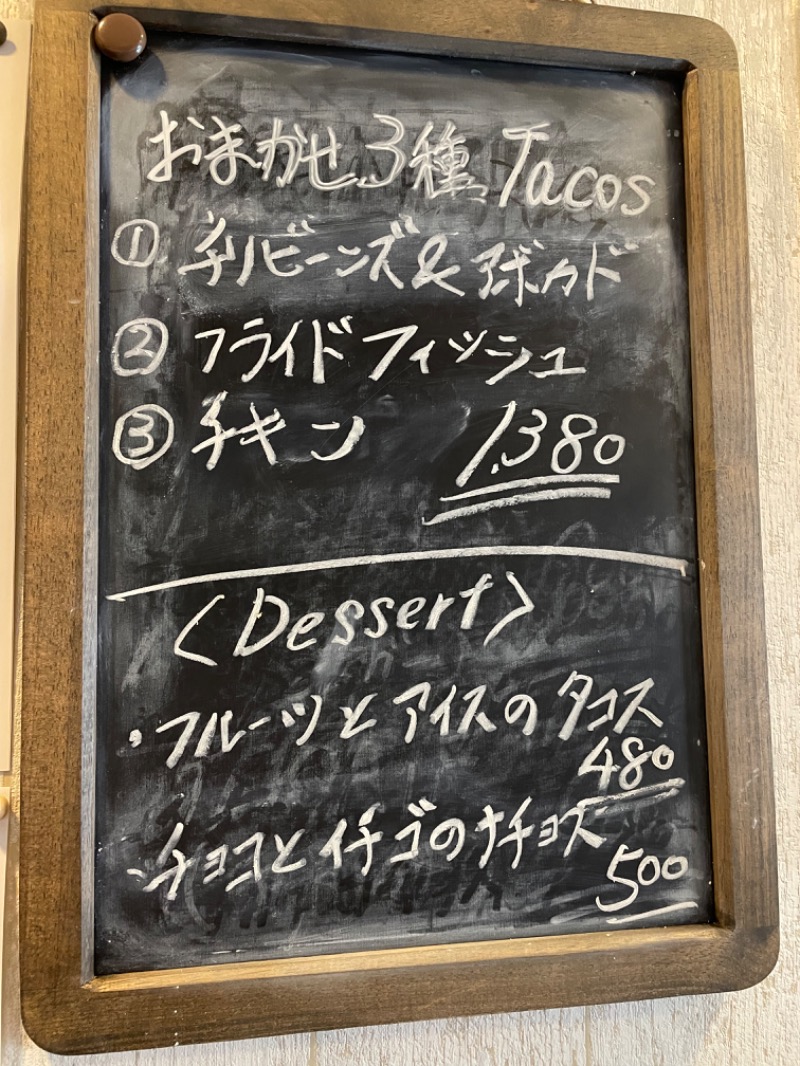 おまかせ3種 Tacos
① チリビーンズ&アボカド
② フライドフィッシュ
③ チキン 1,380
〈Dessert〉
・フルーツとアイスのタコス
480
・チョコとイチゴのナチョス
500